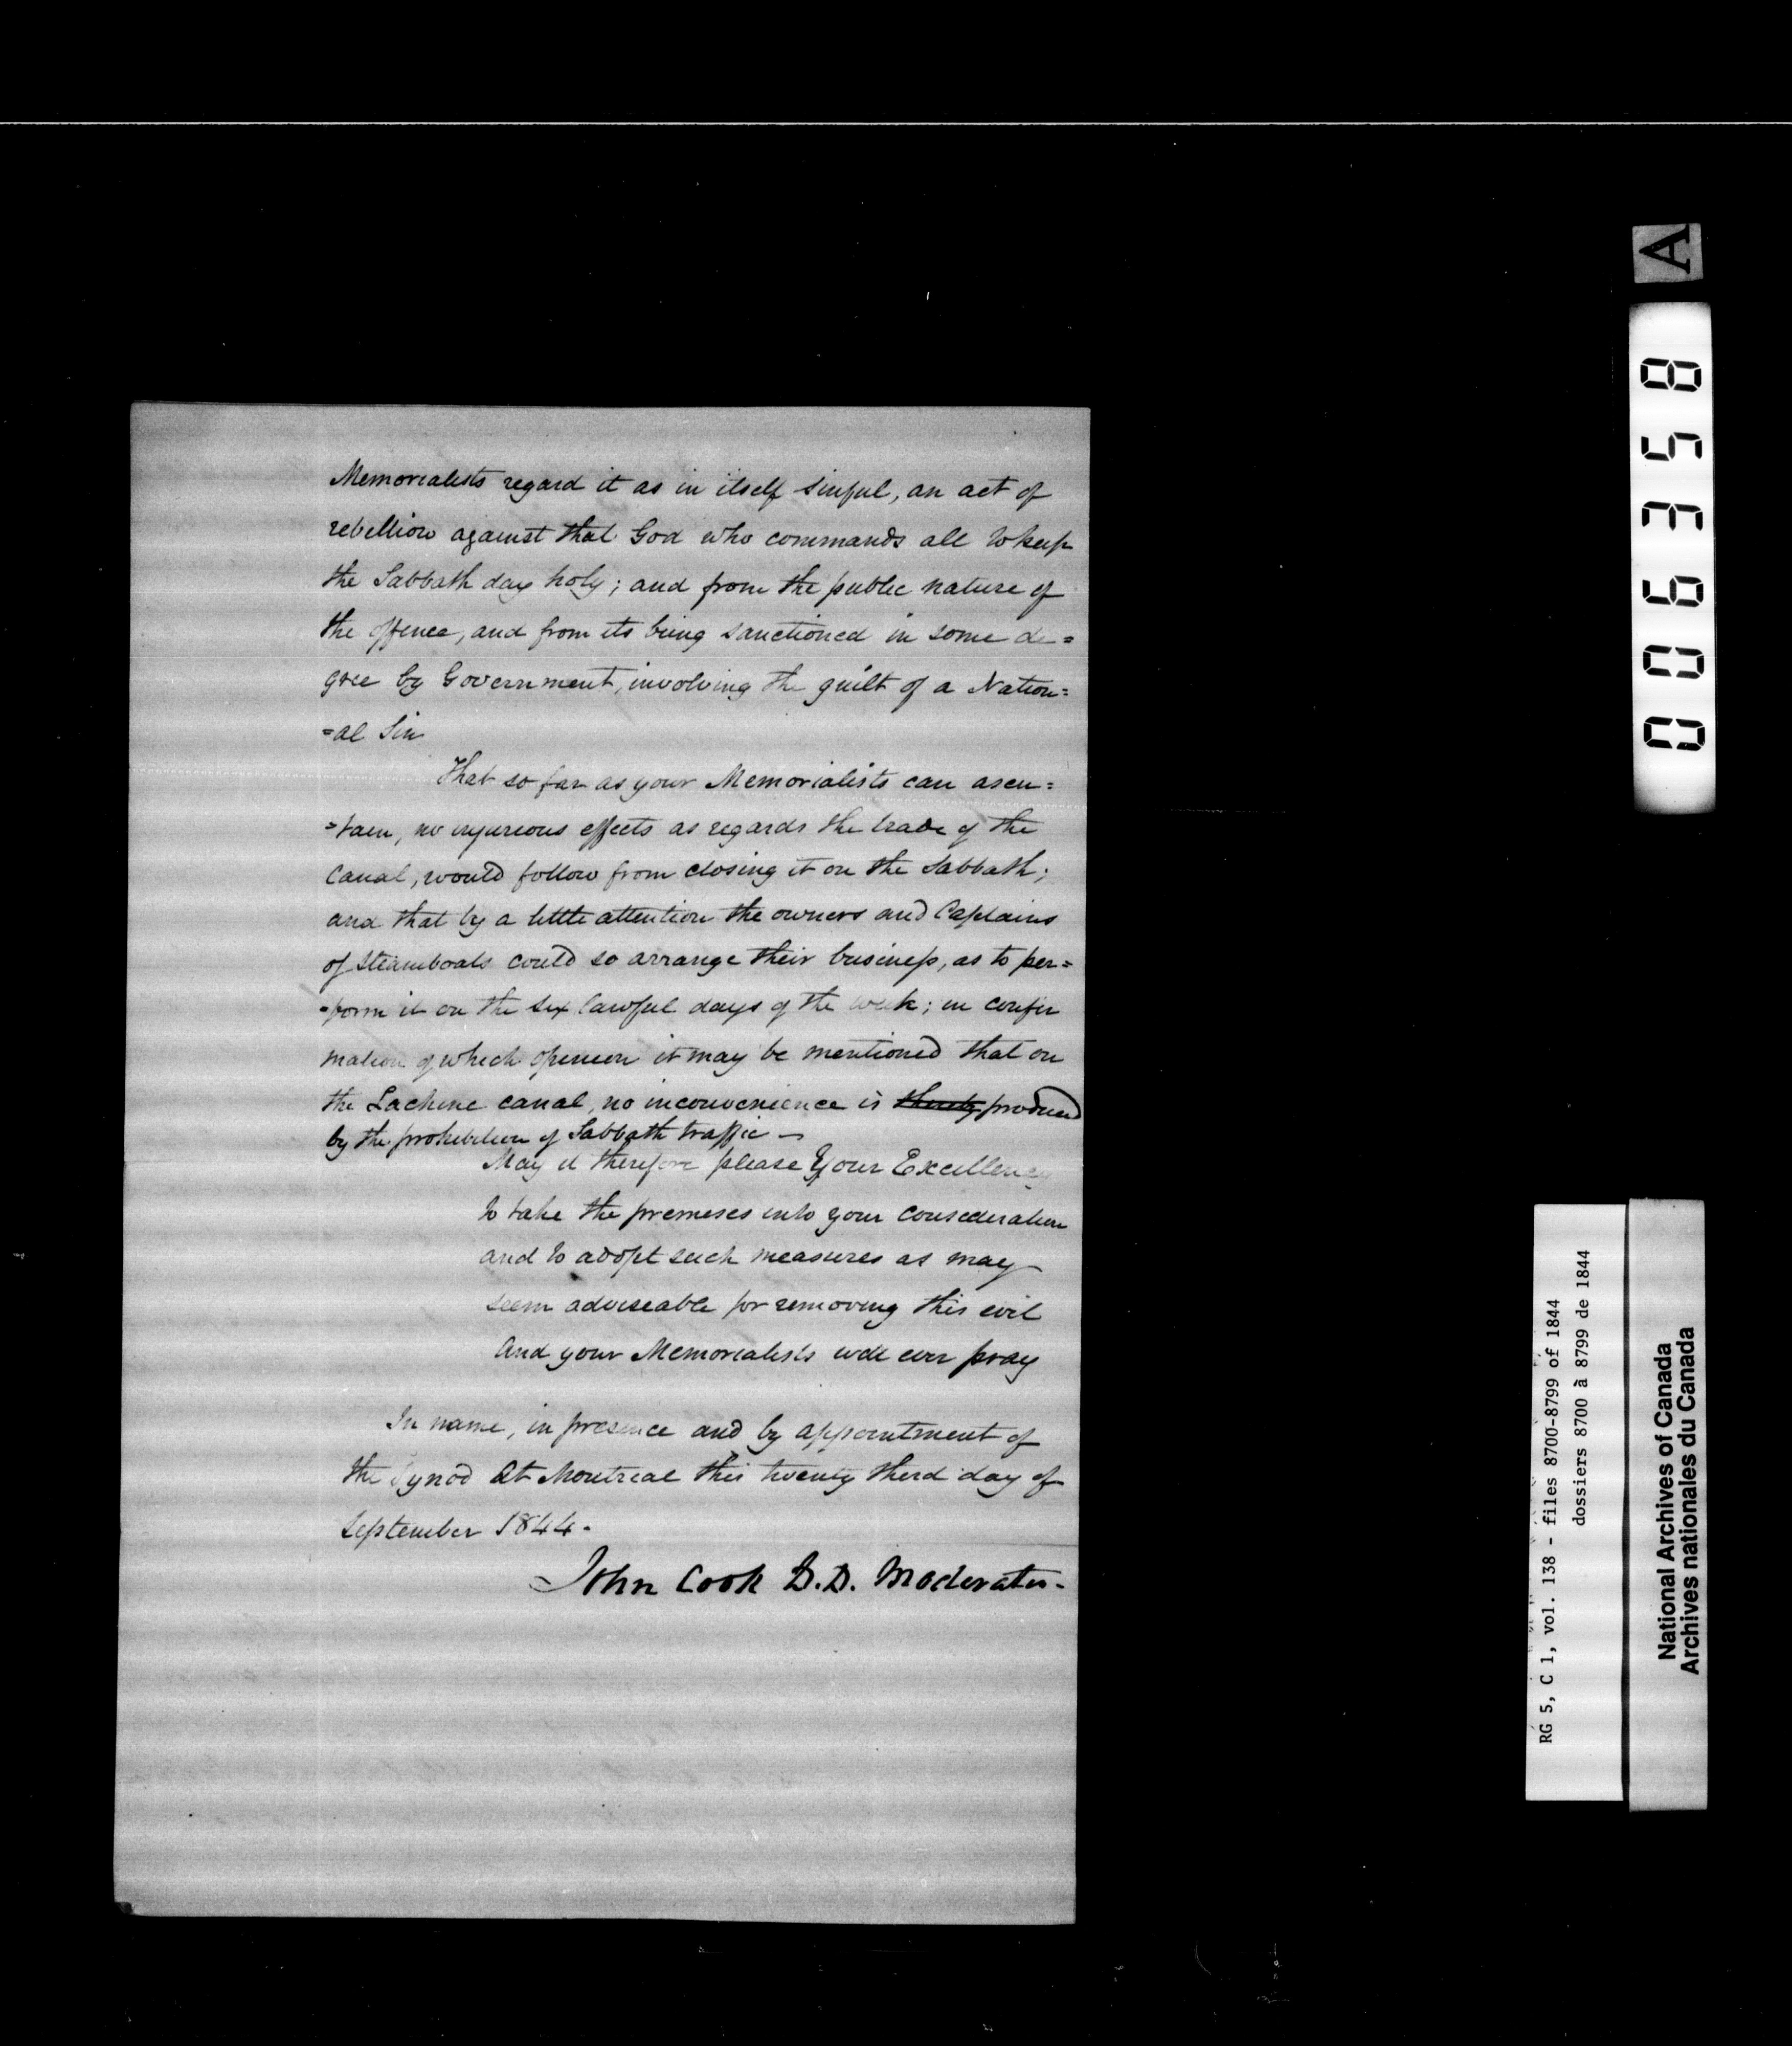 Memorialists regard it as in itself sinful, an act of
rebellion against that God who commands all to keep
the Sabbath day holy; and from the public nature of
the offence, and from its being sanctioned in some de=
gree by Government, involving the guilt of a Nation=
=al Sin
That so far as your Memorialists can ascer=
=tain, no injurious effects as regards the trade of the
Canal, would follow from closing it on the Sabbath;
and that by a little attention the owners and Captains
of Steamboats could so arrange their business, as to per=
=form it on the six lawful days of the week; in confir
mation of which opinion it may be mentioned that on
the Lachine canal, no inconvenience is thereby produced
by the prohibition of Sabbath traffic —
May it therefore please Your Excellency
to take the premises into your consideration
and to adopt such measures as may
seem adviseable for removing this evil
And your Memorialists will ever pray
In name, in presence and by appointment of
the Synod at Montreal this twenty third day of
September 1844.
John Cook D.D. Moderator.
A
006358
RG 5, C 1, vol. 138 - files 8700-8799 of 1844
dossiers 8700 à 8799 de 1844
National Archives of Canada
Archives nationales du Canada